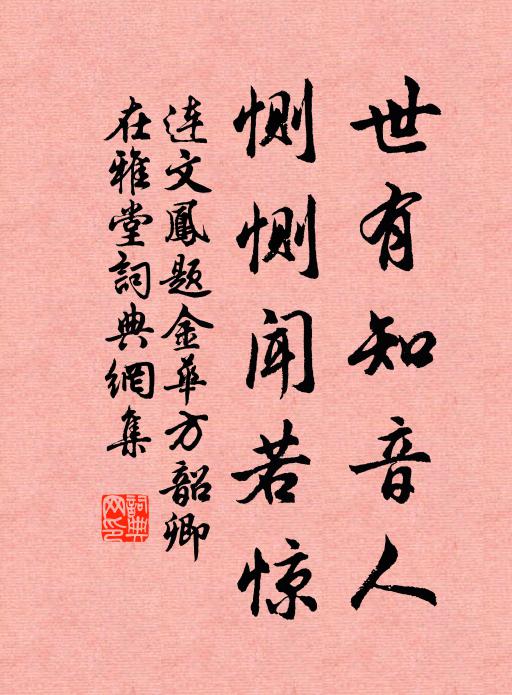 世有知音人
恻恻闻若惊
连文鳳题金华方韶卿
在雅堂詞典網集
詞典网印